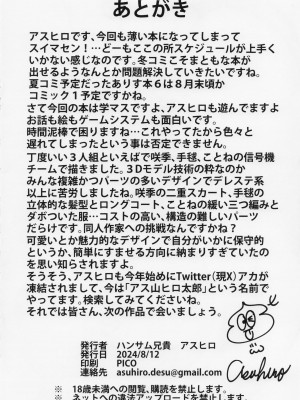 あとがき
アスヒロです、今回も薄い本になってしまって
スイマセン！…どーもここの所スケジュールが上手く
いかない感じなのです。冬コミこそまともな本が
出せるようなんとか問題解決していきたいですね。
夏コミ予定だったありす本6は8月末頃か
コミック1予定ですかね。
さて今回の本は学マスですよ、アスヒロも遊んでますよ
お話も絵もゲームシステムも面白いです。
時間泥棒で困りますね…これやってたから色々と
遅れてしまったという事は否定できません。
丁度いい3人組といえばで咲季、手毬、ことねの信号機
チームで描きました。3Dモデル技術の粋なのか
みんな複雑かつパーツの多いデザインでデレステ系
以上に苦労しましたね。咲季の二重スカート、手毬の
立体的な髪型とロングコート、ことねの緩い三つ編みと
ダボついた服…コストの高い、構造の難しいパーツ
だらけです。同人作家への挑戦なんですかね？
可愛いとか魅力的なデザインで自分がいかに保守的
というか、簡単にすませる方向に納まりすぎていたの
を思い知らされますよ。
そうそう、アスヒロも今年始めにTwitter(現X)アカが
凍結されまして、今は「アス山ヒロ太郎」という名前で
やってます。検索してみてくださいね。
それでは皆さん、次の作品で会いましょう。
発行者 ハンサム兄貴 アスヒロ
発行日 2024/8/12
印刷 PICO
連絡先 asuhiro.desu@gmail.com
Asuhiro
※ 18歳未満への閲覧、購読を禁止します。
※ ネットへの違法アップロードを禁止します。